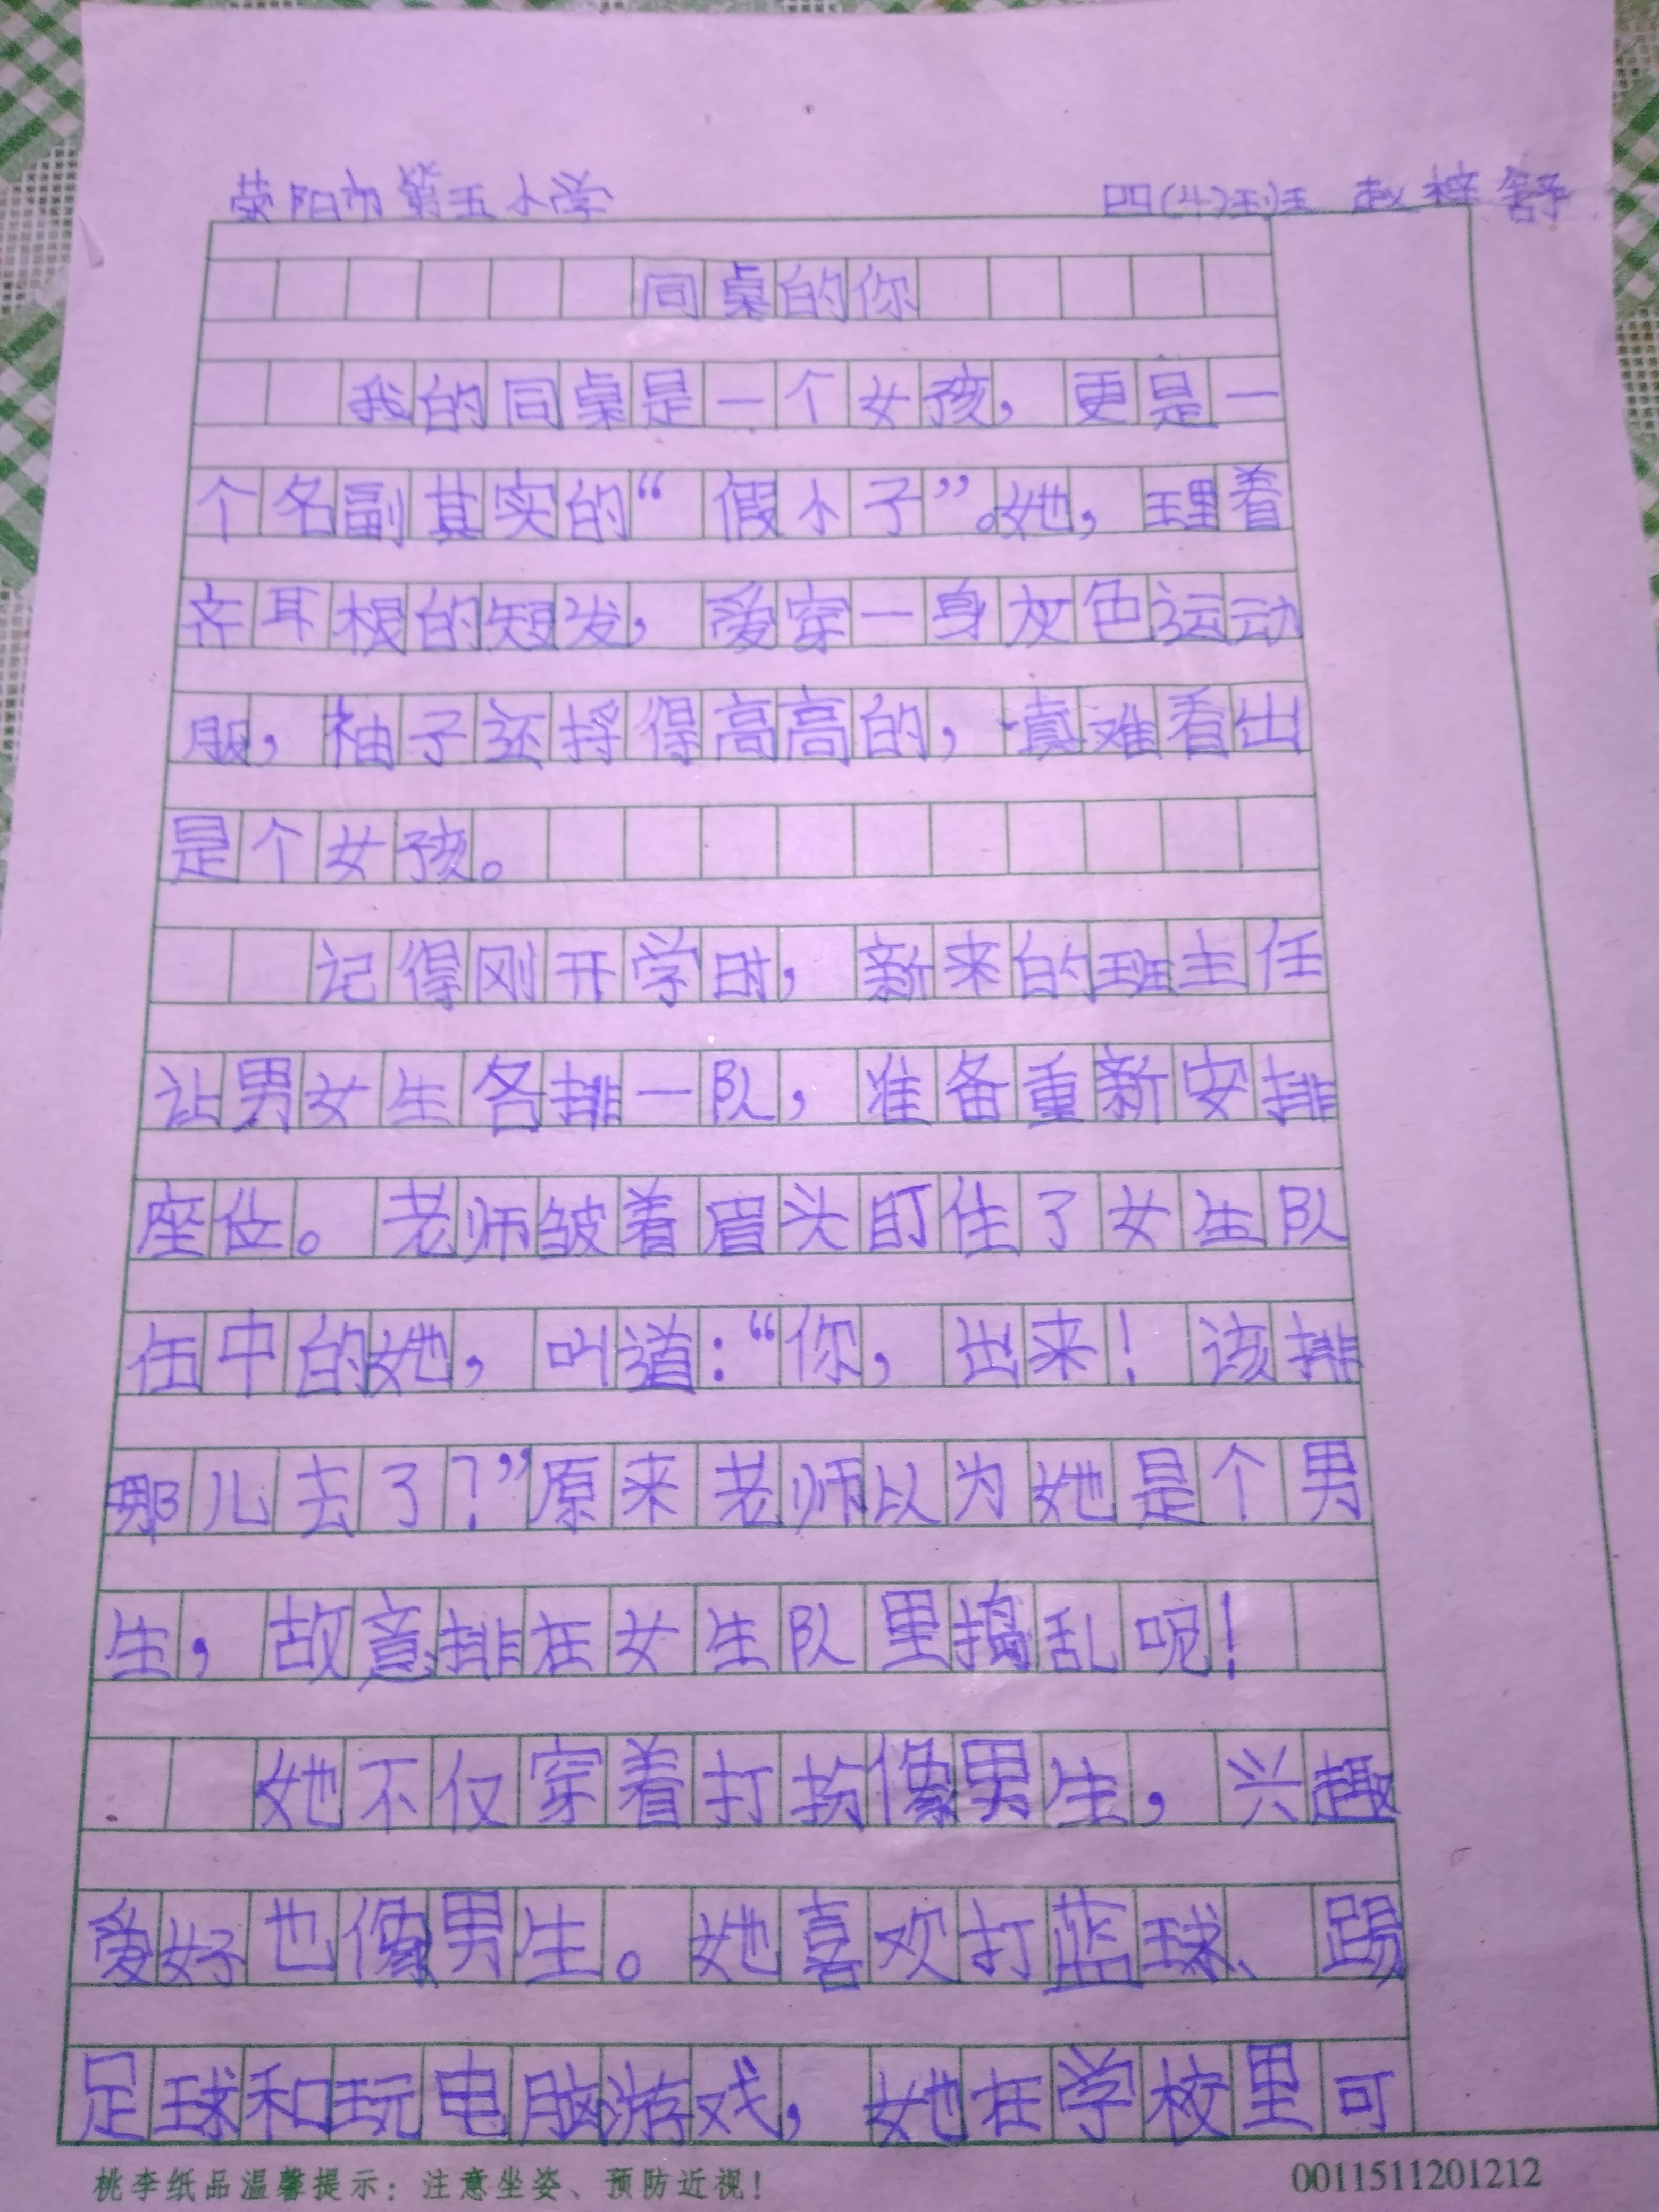 荥阳市第五小学 四(4)班 赵梓舒
同桌的你
我的同桌是一个女孩，更是一
个名副其实的“假小子”。她，理着
齐耳根的短发，爱穿一身灰色运动
服，袖子还捋得高高的，真难看出
是个女孩。
记得刚开学时，新来的班主任
让男女生各排一队，准备重新安排
座位。老师皱着眉头盯住了女生队
伍中的她，叫道：“你，出来！该排
那儿去了？”原来老师以为她是个男
生，故意排在女生队里捣乱呢！
她不仅穿着打扮像男生，兴趣
爱好也像男生。她喜欢打蓝球、踢
足球和玩电脑游戏，她在学校里可
桃李纸品温馨提示：注意坐姿、预防近视！ 0011511201212